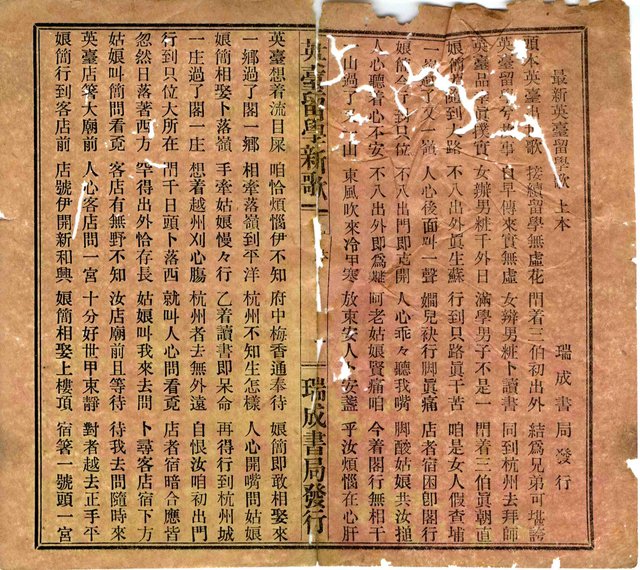 最新英臺留學歌 上本 瑞成書局發行
頭本英臺歌 接續留學無虛花 門着三伯初出外 結為兄弟可堪誇
英臺留學世事 自早傳來實無虛 女辦男粧卜讀書 同到杭州去拜師
英臺品學真樸實 女辦男粧千外日 滿學男子不是一 門着三伯眞朝直
娘簡隨到大路 不八出外眞生蘇 行到只路眞干苦 咱是女人假查埔
一過了又一嶺 人心後面叫一聲 嫺兒袂行脚眞痛 店者宿困卽閣行
娘簡今到只位 不八出門即克開 人心乖々聽我嘴 脚酸姑娘共汝搥
人心聽着心不安 不八出外即為難 呵老姑娘賢痛咱 今着閣行無相干
山過了又一山 東風吹來冷甲寒 放東安人卜安盞 平汝煩惱在心肝
英臺留學新歌 一 瑞成書局發行
英臺想着流目屎 咱恰煩惱伊不知 府中梅香通奉待 娘簡即敢相娶來
一鄉過了閣一鄉 相牽落嶺到平洋 杭州不知生怎樣 人心開嘴問姑娘
娘簡相娶卜落嶺 手牽姑娘慢々行 乙着讀書即呆命 再得行到杭州城
一庄過了閣一庄 想着越州刈心腸 杭州者去無外遠 自恨汝咱初出門
行到只位大所在 門千日頭卜落西 就叫人心問看覓 店者宿暗合應皆
忽然日落著西方 罕得出外恰存長 姑娘叫我來去問 卜尋客店宿下方
姑娘叫簡問看覓 客店有無野不知 汝店廟前且等待 待我去問隨時來
英臺店箸大廟前 人心客店問一宮 十分好世甲東靜 對者越去正手平
娘簡行到客店前 店號伊開新和興 娘簡相娶上樓頂 宿箸一號頭一宮